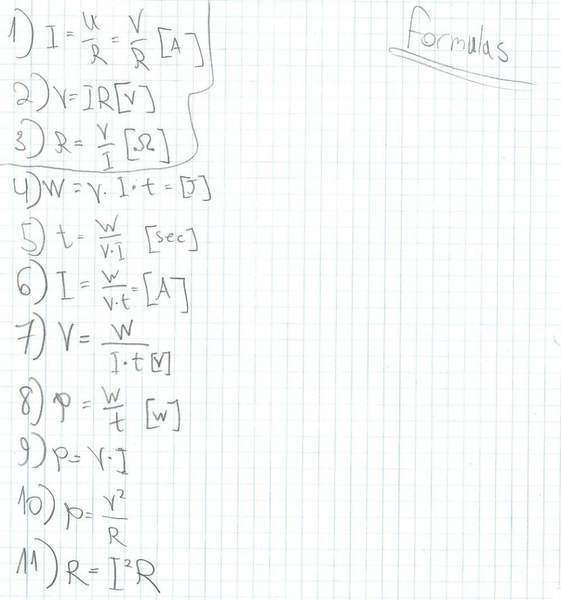 Formulas
1) I = U/R = V/R [A]
2) V = IR [V]
3) R = V/I [Ω]
4) W = V · I · t = [J]
5) t = W/V·I [sec]
6) I = W/V·t = [A]
7) V = W/I·t [V]
8) p = W/t [W]
9) p = V · I
10) p = V²/R
11) R = I²R